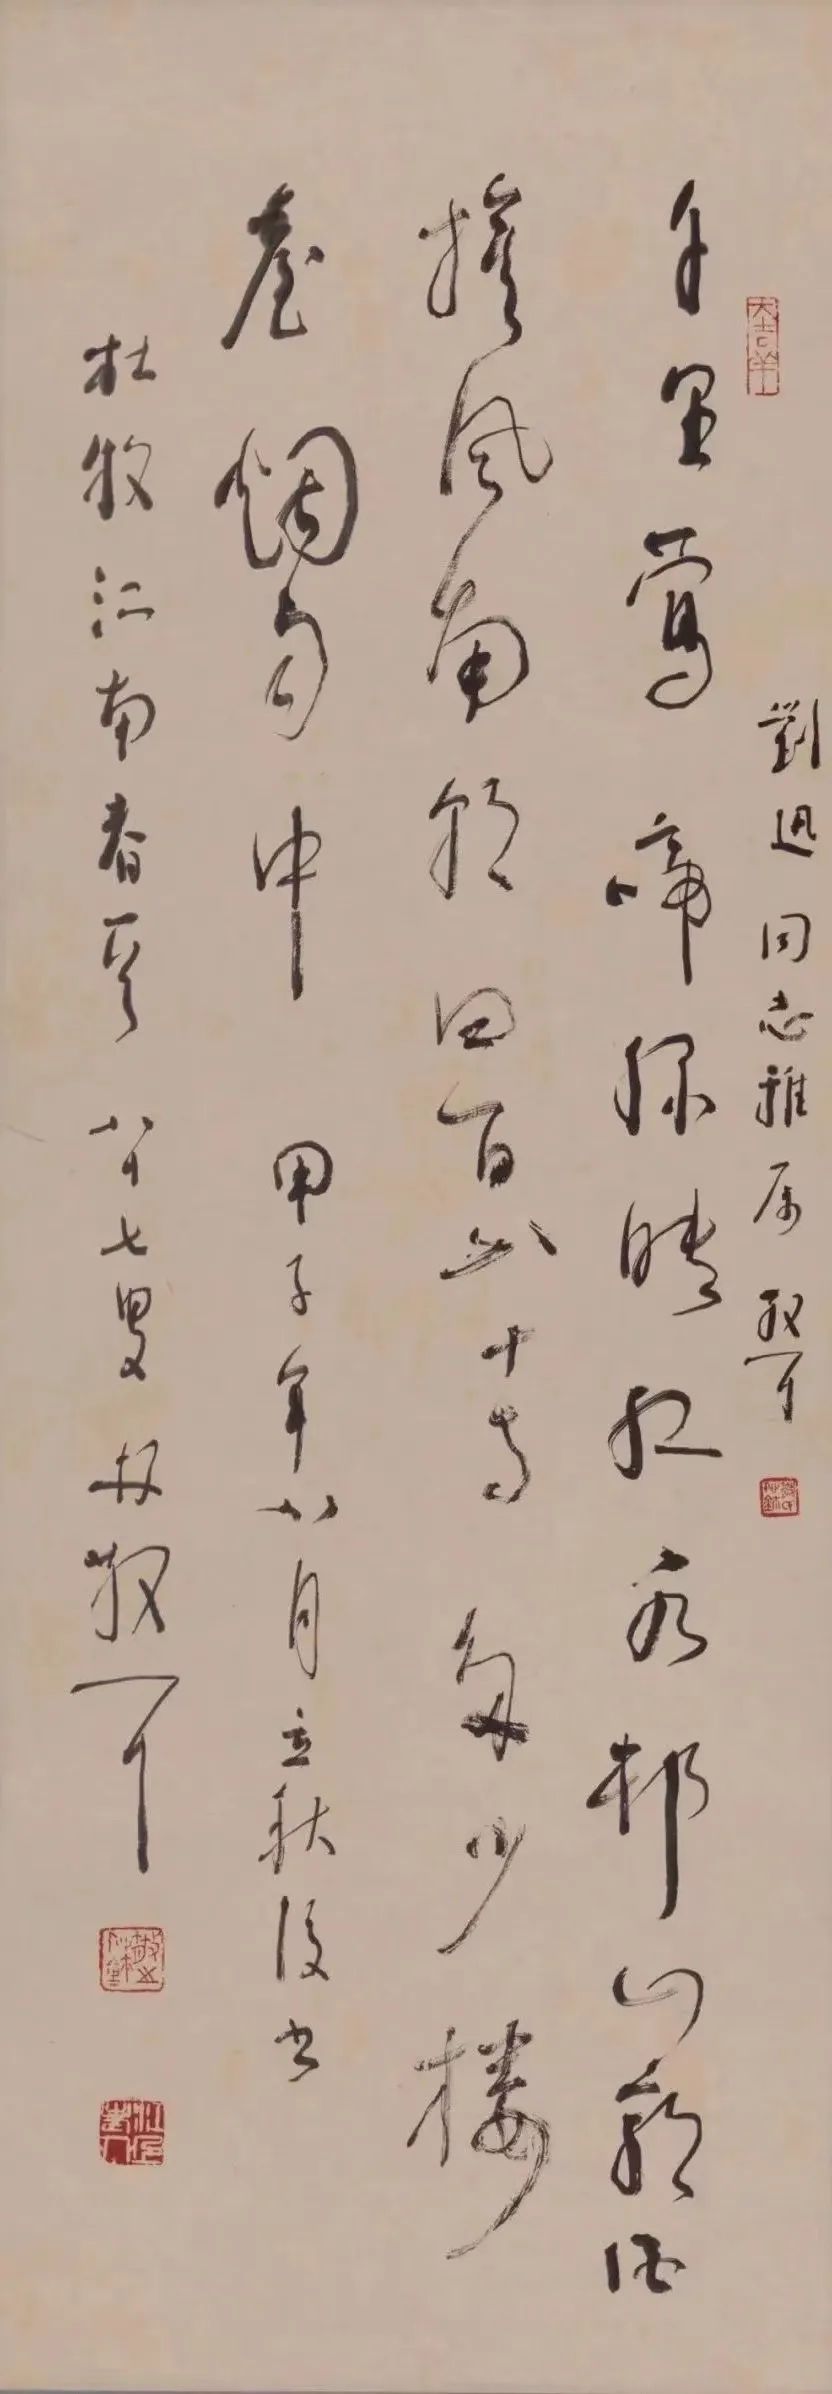 劉迅同志雅属 散耳
大吉羊
千里鶯啼綠映紅水邨山郭酒
旗風南朝四百八十寺多少樓
臺烟雨中 甲子年八月立秋後书
杜牧江南春一首 八十七叟林散耳